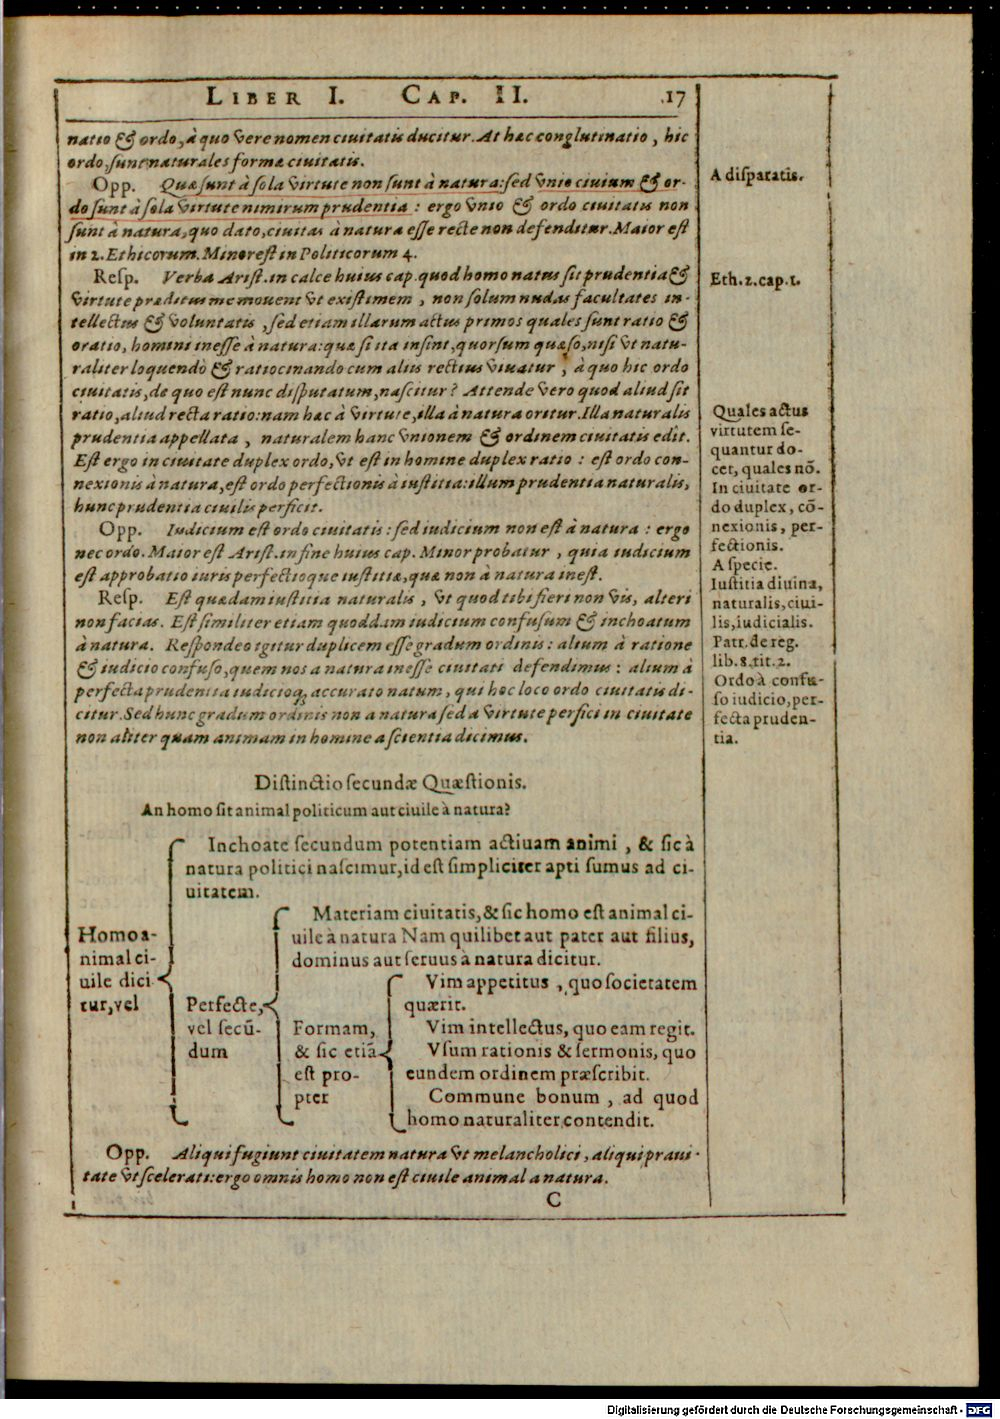 LIBER I. CAP. II. 17
natio & ordo, à quo vere nomen ciuitatis ducitur. At hæc conglutinatio, hic
ordo, sunt naturales formæ ciuitatis.
Opp. Quæ sunt à sola virtute non sunt à natura: sed vnio ciuium & or-
do sunt à sola virtute nimirum prudentia: ergo vnio & ordo ciuitatis non
sunt à natura, quo dato, ciuitas à natura esse recte non defenditur. Maior est
in 2. Ethicorum. Minor est in Politicorum 4.
A disparatis.
Resp. Verba Arist. in calce huius cap. quod homo natus sit prudentia &
virtute præditus me mouent vt existimem, non solum nudas facultates in-
tellectus & voluntatis, sed etiam illarum actus primos quales sunt ratio &
oratio, homini inesse à natura: quæ si ita insint, quorsum quæso, nisi vt natu-
raliter loquendò & ratiocinando cum aliis rectius viuatur, à quo hic ordo
ciuitatis, de quo est nunc disputatum, nascitur? Attende vero quod aliud sit
ratio, aliud recta ratio: nam hæc à virtute, illa à natura oritur. Illa naturalis
prudentia appellata, naturalem hanc vnionem & ordinem ciuitatis edit.
Est ergo in ciuitate duplex ordo, vt est in homine duplex ratio: est ordo con-
nexionis à natura, est ordo perfectionis à iustitia: illum prudentia naturalis,
hunc prudentia ciuilis perficit.
Eth. 2. cap. 1.
Quales actus
virtutem se-
quantur do-
cet, quales nō.
In ciuitate or-
do duplex, cō-
nexionis, per-
fectionis.
Opp. Iudicium est ordo ciuitatis: sed iudicium non est à natura: ergo
nec ordo. Maior est Arist. in fine huius cap. Minor probatur, quia iudicium
est approbatio iuris perfectioque iustitiæ, quæ non à natura inest.
A specie.
Resp. Est quædam iustitia naturalis, vt quod tibi fieri non vis, alteri
non facias. Est similiter etiam quoddam iudicium confusum & inchoatum
à natura. Respondeo igitur duplicem esse gradum ordinis: alium à ratione
& iudicio confuso, quem nos a natura inesse ciuitati defendimus: alium à
perfecta prudentia iudicioq; accurato natum, qui hoc loco ordo ciuitatis di-
citur. Sed hunc gradum ordinis non a natura sed a virtute perfici in ciuitate
non aliter quam animam in homine a scientia dicimus.
Iustitia diuina,
naturalis, ciui-
lis, iudicialis.
Patr. de reg.
lib. 8. tit. 2.
Ordo à confu-
so iudicio, per-
fecta pruden-
tia.
Distinctio secundæ Quæstionis.
An homo sit animal politicum aut ciuile à natura?
Homo a-
nimal ci-
uile dici
tur, vel
Inchoate secundum potentiam actiuam animi, & sic à
natura politici nascimur, id est simpliciter apti sumus ad ci-
uitatem.
Perfecte,
vel secū-
dum
Materiam ciuitatis, & sic homo est animal ci-
uile à natura Nam quilibet aut pater aut filius,
dominus aut seruus à natura dicitur.
Formam,
& sic etiā
est pro-
pter
Vim appetitus, quo societatem
quærit.
Vim intellectus, quo eam regit.
Vsum rationis & sermonis, quo
eundem ordinem præscribit.
Commune bonum, ad quod
homo naturaliter contendit.
Opp. Aliqui fugiunt ciuitatem natura vt melancholici, aliqui praui-
tate vt scelerati: ergo omnis homo non est ciuile animal a natura.
C
Digitalisierung gefördert durch die Deutsche Forschungsgemeinschaft - DFG